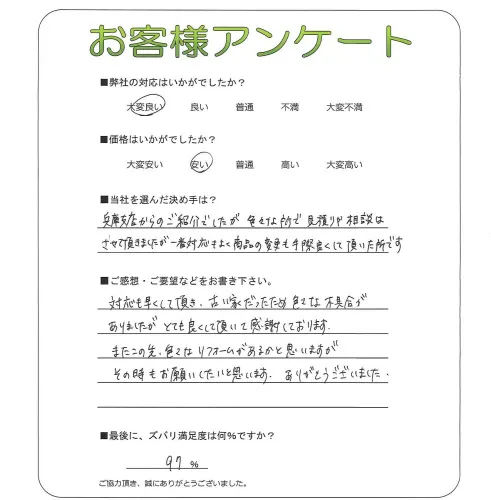 お客様アンケート
■弊社の対応はいかがでしたか?
大変良い 良い 普通 不満 大変不満
■価格はいかがでしたか?
大変安い 安い 普通 高い 大変高い
■当社を選んだ決め手は?
兵庫支店からのご紹介でしたが 色々な所で 見積りや相談は
させて頂きましたが一番対応もよく商品の変更も手際良くして頂いた所です
■ご感想・ご要望などをお書き下さい。
対応も早くして頂き、古い家だったため 色々な 不具合が
ありましたが とても良くして頂いて感謝しております.
またこの先、色々な リフォームがあるかと思いますが
その時もお願いしたいと思います. ありがとうございました.
■最後に、ズバリ満足度は何%ですか?
97 %
ご協力頂き、誠にありがとうございました。